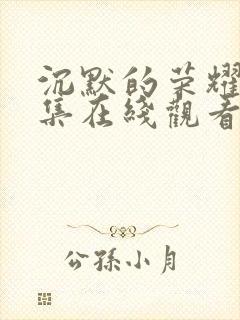 沉默的荣耀
集在线觀看
公孫小月